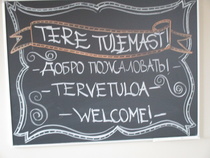 TERE TULEMAST!
-ДОБРО ПОЖАЛОВАТЬ!-
-TERVETULOA-
-WELCOME!-